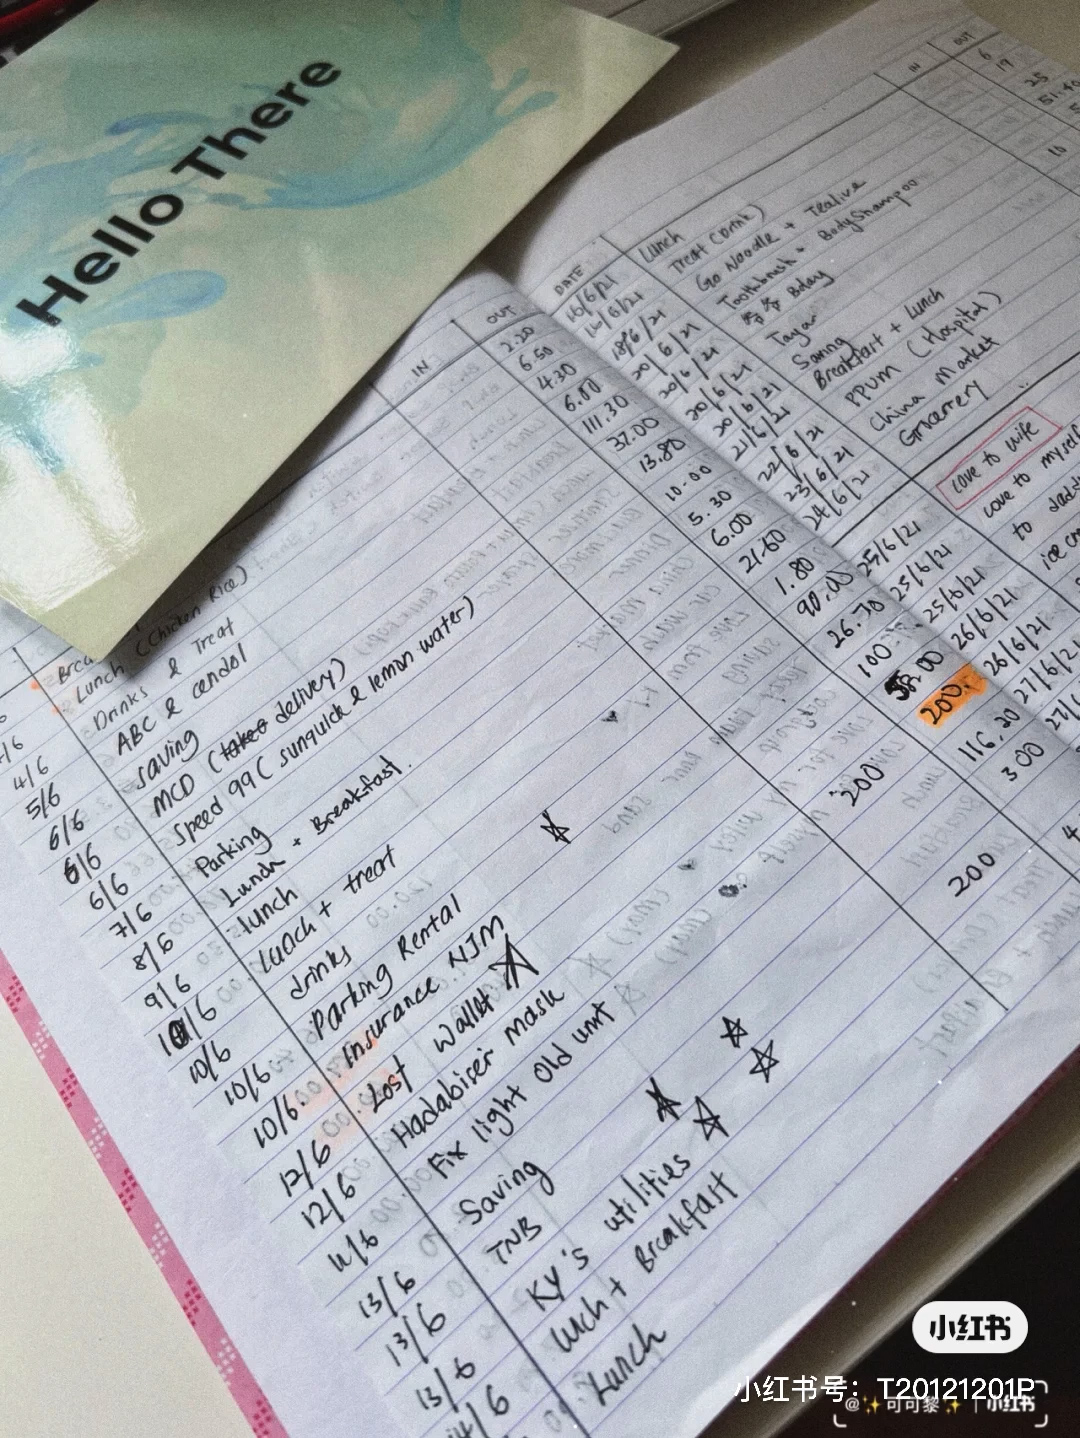 Hello There
IN OUT
2.20
6.50
4.30
6.00
111.30
37.00
13.80
10.00
5.30
6.00
21.60
1.80
90.00
26.70
100.
58.00
200.
116.20
3.00
200
200
Lunch (Chicken Rice)
Drinks & Treat
4/6 ABC & cendol
5/6 saving
6/6 MCD (take delivery)
6/6 Speed 99 ( sunquick & lemon water)
6/6 Parking
7/6 Lunch + Breakfast.
8/6 lunch
9/6 Lunch + treat
10/6 drinks
10/6 Parking Rental
10/6 Insurance NJM
10/6 Lost Wallet
12/6 Hadabiser mask
12/6 Fix light Old unit
Saving
13/6 TNB
13/6 KY's utilities
13/6 Luch + Breakfast
14/6 Lunch
DATE IN OUT
16/6/21 Lunch 6
16/6/21 Treat (Drink) 19
18/6/21 Go Noodle + Tealive 25
20/6/21 Toothbrush + BodyShampoo
20/6/21 Bday
20/6/21 Taylor
20/6/21 Saving
21/6/21 Breakfast + Lunch
22/6/21 PPUM (Hospital)
23/6/21 China Market
24/6/21 Grocerrery
25/6/21 Love to wife
25/6/21 Love to myself
25/6/21 to
26/6/21
26/6/21
27/6/21
小红书
小红书号：T20121201P
@✨可可黎✨ | 小红书